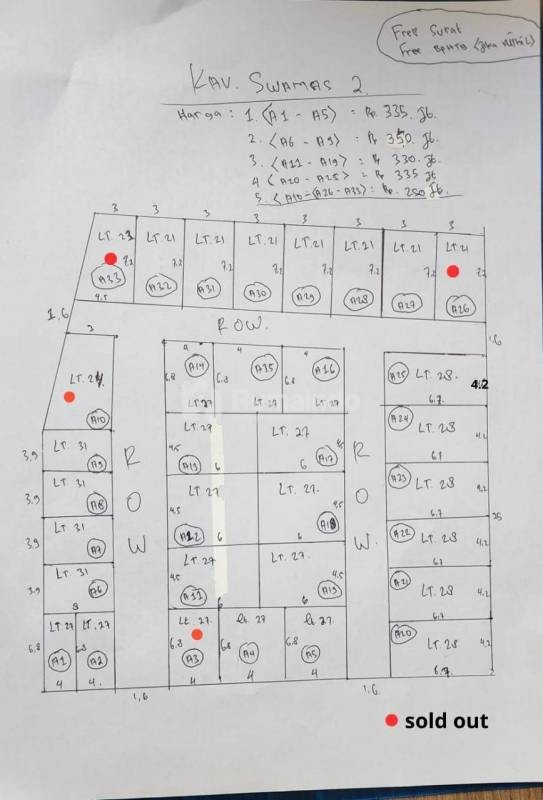 Free Surat
Free BPHTB
KAV. SWAMAS 2.
Harga : 1. <A1 - A5> = Rp. 335. Jt.
2. <A6 - A9> = Rp 350. Jt.
3. <A11 - A19> = Rp 330. Jt
4 <A20 - A25> = Rp 335 Jt
5. <A10 - <A26 - A33> = Rp. 250 Jt.
3 3 3 3 3 3 3 3
LT. 23 LT. 21 LT. 21 LT. 21 LT. 21 LT. 21 LT. 21 LT. 21
7.2 7.2 7.2 7.2 7.2 7.2 7.2 7.2
A33 A32 A31 A30 A29 A28 A27 A26
4.5
1,6 ROW. 1.6
2 4 4
A14 A15 A16
6.8 6.8 6.8
LT. 27 LT. 27 LT. 27
LT. 24 A10
A25 LT. 28. 4.2
6.7
3.9 LT. 31 A9
LT. 27 4.5 A13 6
LT. 27 4.5 6 A17
A24 LT. 28 4.2
6.7
3.9 LT. 31 A8
ROW
ROW.
A23 LT. 28 4.2
3.9 LT. 31 A7
LT 27 4.5 A12 6
LT. 27. 4.5 6 A18
A22 LT. 28 4.2
6.7
3.9 LT. 31 A6
8
LT. 27 4.5 A11 6
LT. 27. 4.5 6 A19
A21 LT. 28 4.2
6.7
LT. 27 LT. 27
6,8 A1 6.8 A2
4 4.
Lt. 27. Lt. 27 Lt 27.
6,8 A3 6.8 A4 6.8 A5
4 4 4
A20 LT. 28 4.2
6.7
1,6 1,6
sold out